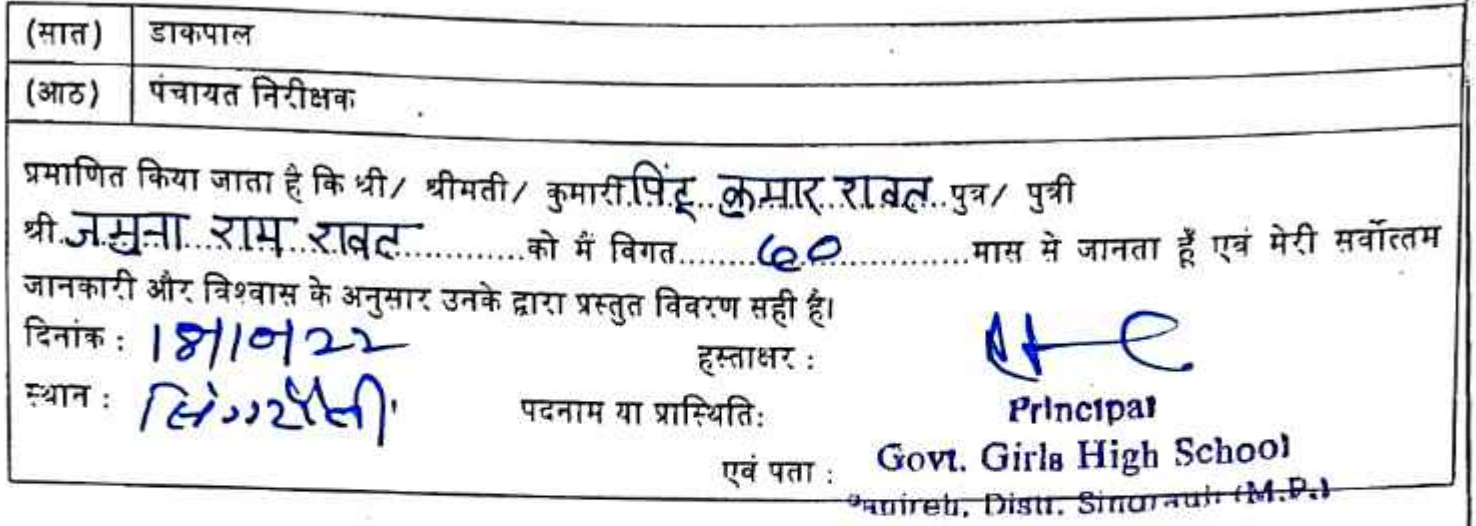 (सात) डाकपाल
(आठ) पंचायत निरीक्षक
प्रमाणित किया जाता है कि श्री/ श्रीमती/ कुमारी पिंटू कुमार रावत पुत्र/ पुत्री
श्री जमुना राम रावत को मैं विगत 60 मास से जानता हूँ एवं मेरी सर्वोत्तम
जानकारी और विश्वास के अनुसार उनके द्वारा प्रस्तुत विवरण सही है।
दिनांक : 18/10/22 हस्ताक्षर :
स्थान : सिंगरौली पदनाम या प्रास्थिति: Principal
एवं पता : Govt. Girls High School
Distt. Singrauli (M.P.)